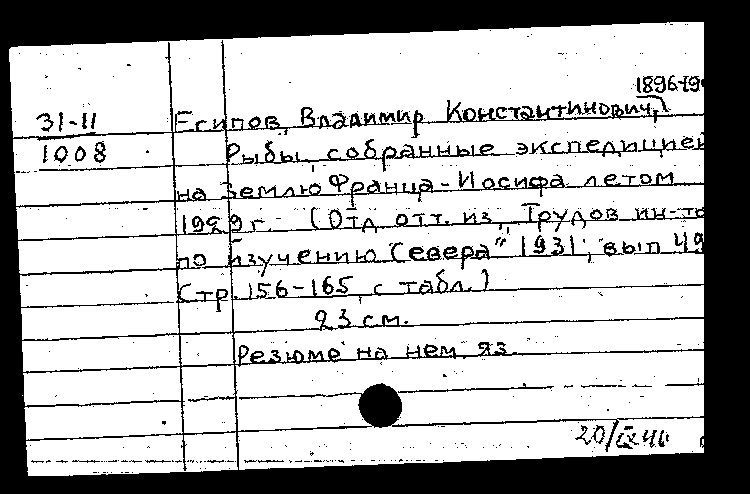 1896-19
31-11 Есипов, Владимир Константинович,
1008 Рыбы, собранные экспедицией
на Землю Франца-Иосифа летом
1929 г. (Отд. отт. из "Трудов ин-та
по изучению Севера" 1931, вып 49
Стр. 156-165, с табл.)
23 см.
Резюме на нем. яз.
20/IX 40